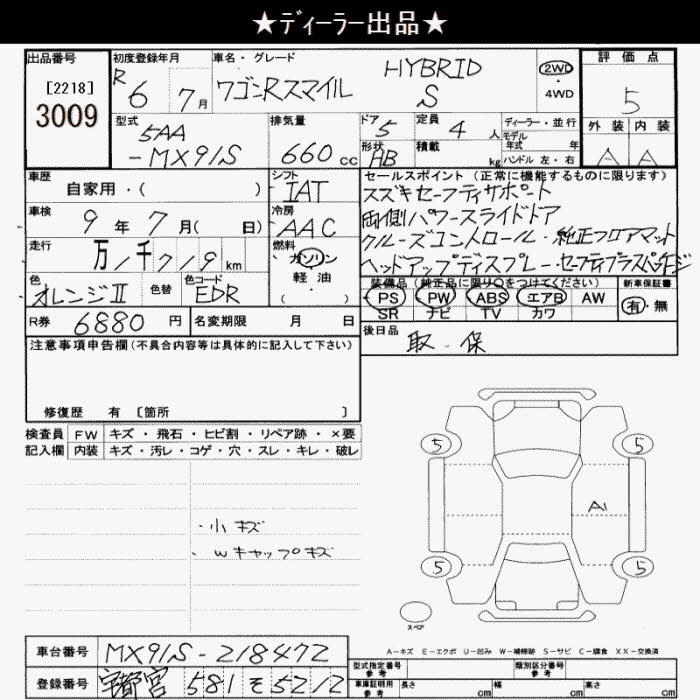 ★ディーラー出品★
出品番号
[2218]
3009
初度登録年月
R6 7月
車名・グレード
ワゴンRスマイル HYBRID S
2WD
・
4WD
評価点
5
外装 内装
A A
型式
5AA
-MX91S
排気量
660cc
ドア 5
形状 HB
定員 4人
積載 kg
ディーラー・並行
モデル
年式 年
ハンドル 左・右
車歴
自家用・( )
シフト
IAT
車検
9年7月( 日)
冷房
AAC
走行
万/千7/9km
燃料
ガソリン
軽油
( )
色
オレンジⅡ
色替
色コード
EDR
R券 6880円
名変期限 月 日
セールスポイント(正常に機能するものに限ります)
スズキセーフティサポート
両側パワースライドドア
クルーズコントロール・純正フロアマット
ヘッドアップディスプレー・セーフティプラスパッケージ
装備品(純正品に限り○をつけてください)
PS PW ABS エアB AW
SR ナビ TV カワ
新車保証書
有・無
後日品
取・保
注意事項申告欄(不具合内容等は具体的に記入して下さい)
修復歴 有 〔箇所 〕
検査員 FW キズ・飛石・ヒビ割・リペア跡・×要
記入欄 内装 キズ・汚レ・コゲ・穴・スレ・キレ・破レ
・小キズ
・Wキャップキズ
5 5
A1
5 5
スペア
A-キズ E-エクボ U-凹み W-補修跡 S-サビ C-腐食 XX-交換済
車台番号 MX91S-218472
登録番号 宇都宮 581 そ 5212
型式指定番号
参考
類別区分番号
参考
車庫証明用
参考
長さ cm 幅 cm 高さ cm